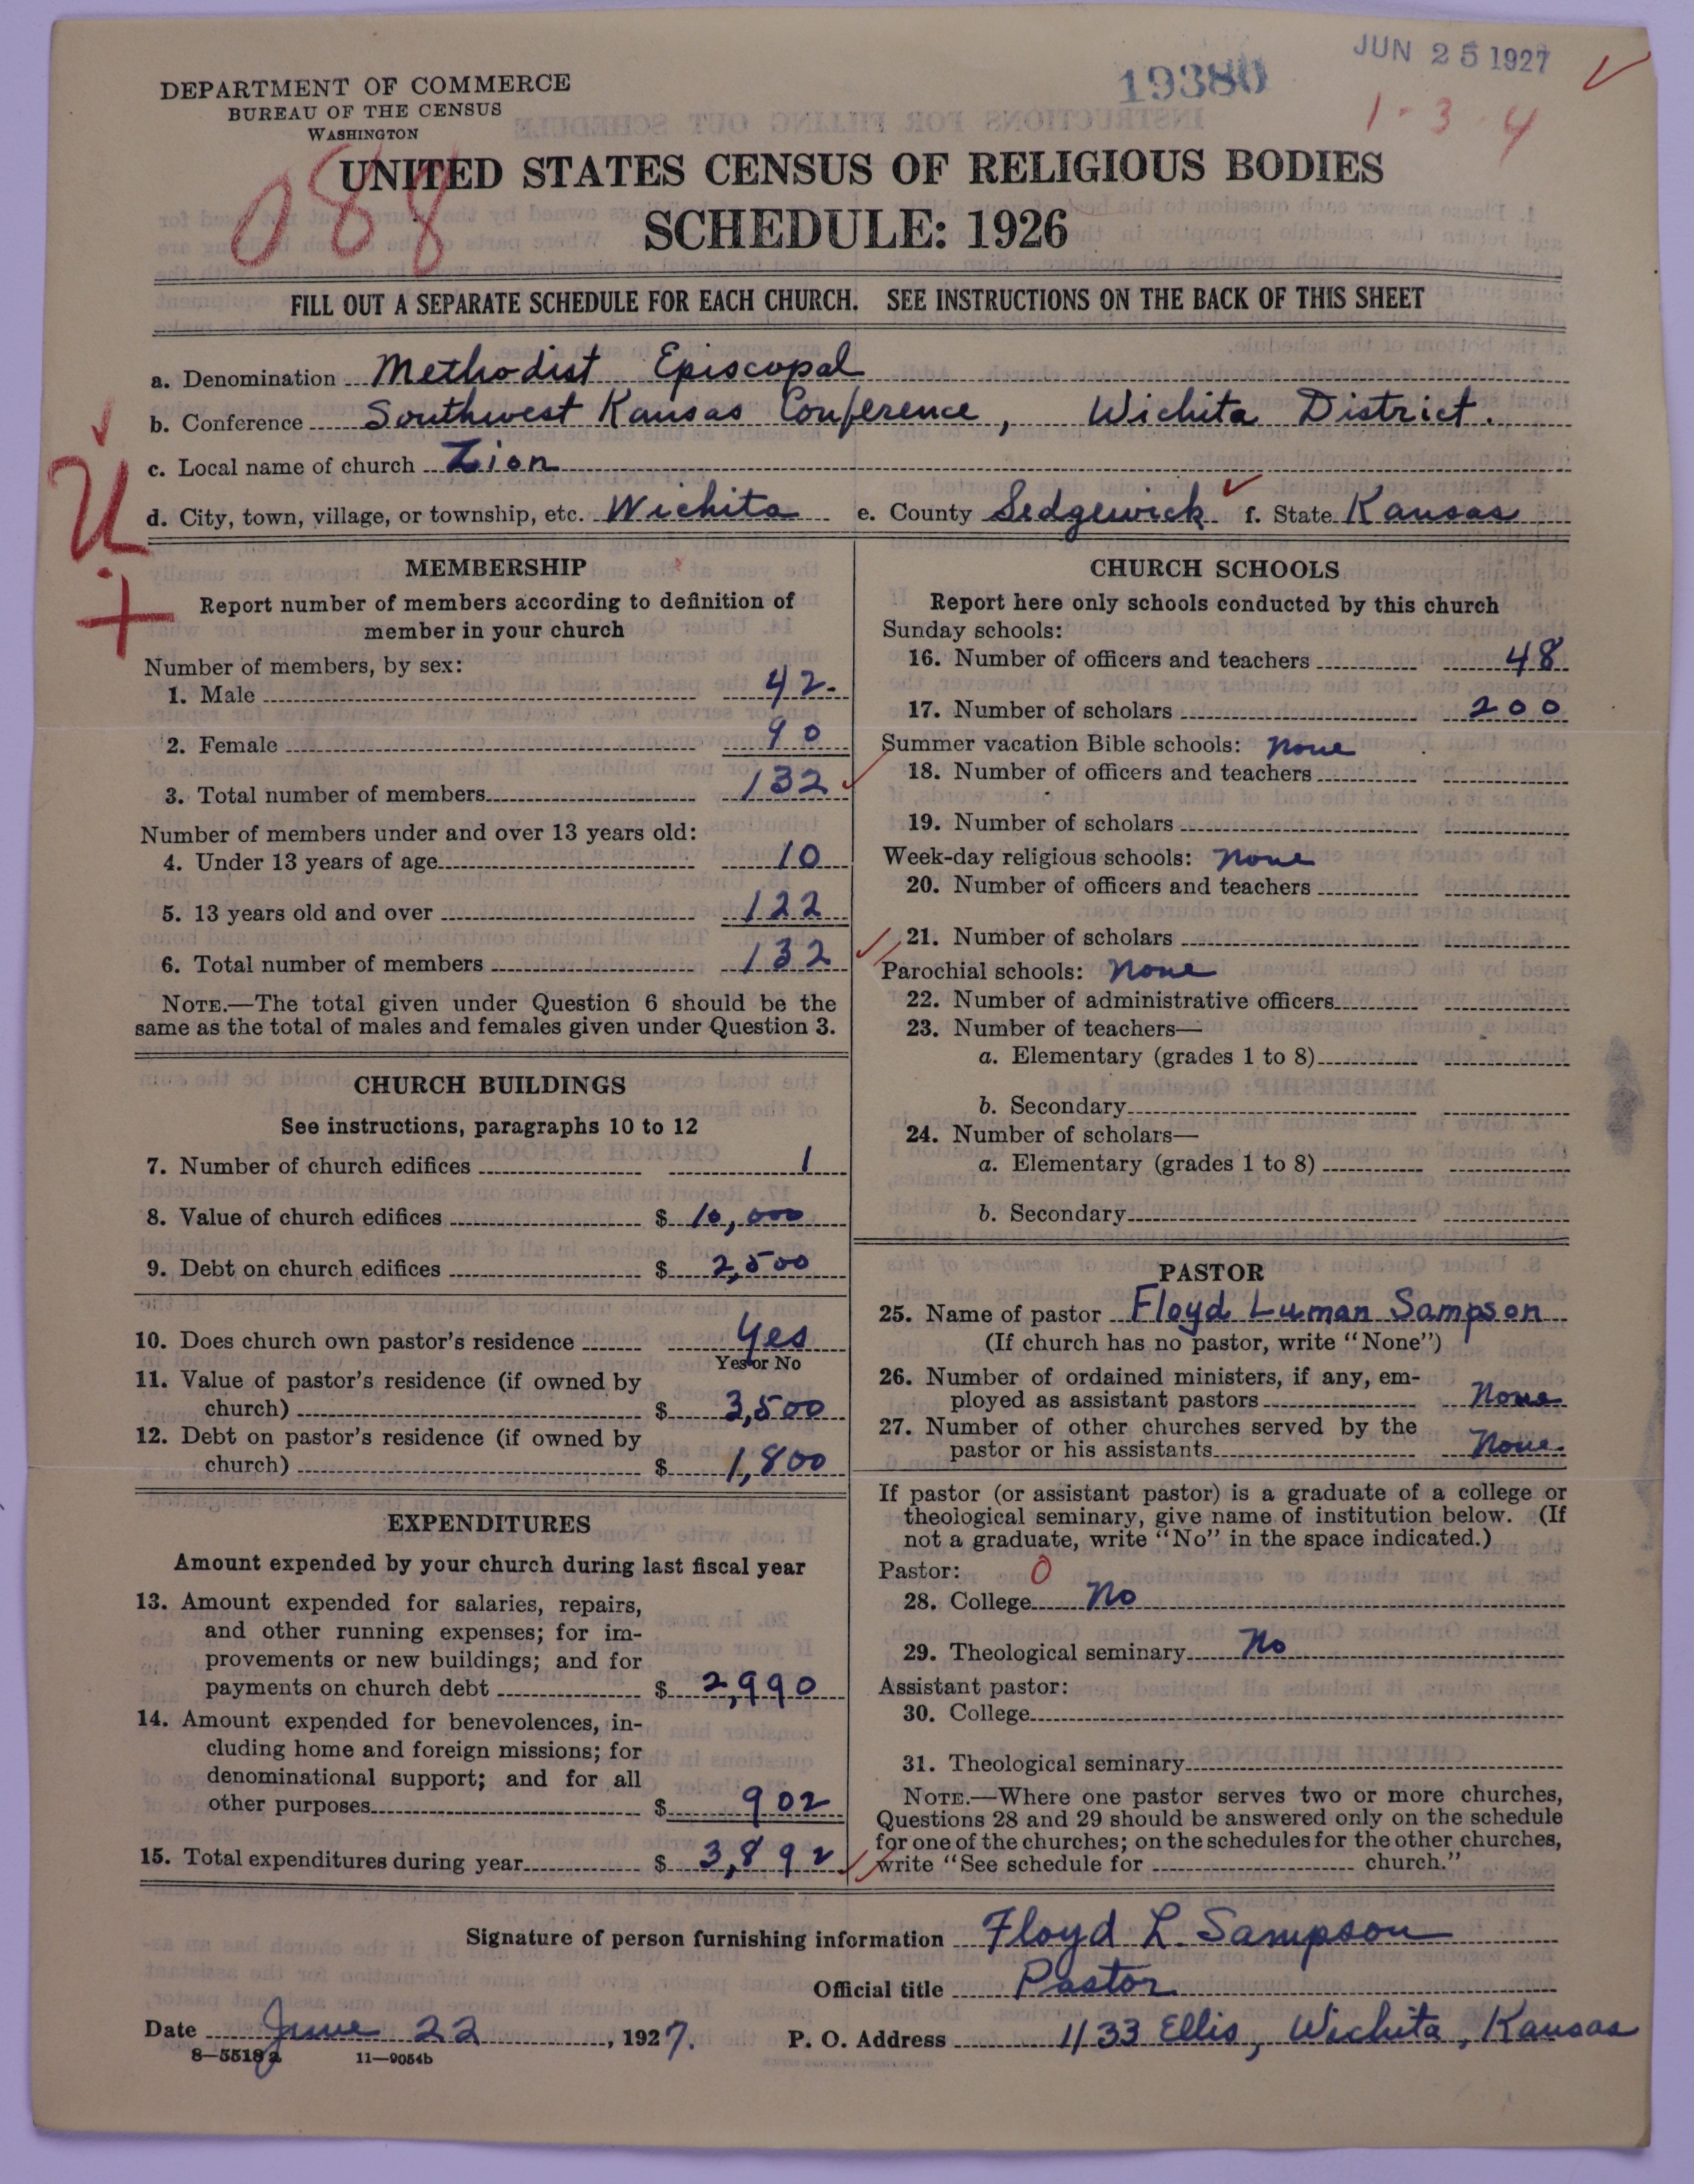 JUN 25 1927
19380
1-3-4
DEPARTMENT OF COMMERCE
BUREAU OF THE CENSUS
WASHINGTON
088
UNITED STATES CENSUS OF RELIGIOUS BODIES
SCHEDULE: 1926
FILL OUT A SEPARATE SCHEDULE FOR EACH CHURCH. SEE INSTRUCTIONS ON THE BACK OF THIS SHEET
a. Denomination Methodist Episcopal
b. Conference Southwest Kansas Conference, Wichita District.
c. Local name of church Zion
d. City, town, village, or township, etc. Wichita e. County Sedgewick f. State Kansas
U
+
MEMBERSHIP
Report number of members according to definition of
member in your church
Number of members, by sex:
1. Male 42
2. Female 90
3. Total number of members 132
Number of members under and over 13 years old:
4. Under 13 years of age 10
5. 13 years old and over 122
6. Total number of members 132
NOTE.—The total given under Question 6 should be the
same as the total of males and females given under Question 3.
CHURCH BUILDINGS
See instructions, paragraphs 10 to 12
7. Number of church edifices 1
8. Value of church edifices $ 10,000
9. Debt on church edifices $ 2,500
10. Does church own pastor's residence Yes
Yes or No
11. Value of pastor's residence (if owned by
church) $ 3,500
12. Debt on pastor's residence (if owned by
church) $ 1,800
EXPENDITURES
Amount expended by your church during last fiscal year
13. Amount expended for salaries, repairs,
and other running expenses; for im-
provements or new buildings; and for
payments on church debt $ 2,990
14. Amount expended for benevolences, in-
cluding home and foreign missions; for
denominational support; and for all
other purposes $ 902
15. Total expenditures during year $ 3,892
CHURCH SCHOOLS
Report here only schools conducted by this church
Sunday schools:
16. Number of officers and teachers 48
17. Number of scholars 200
Summer vacation Bible schools: None
18. Number of officers and teachers
19. Number of scholars
Week-day religious schools: None
20. Number of officers and teachers
21. Number of scholars
Parochial schools: None
22. Number of administrative officers
23. Number of teachers—
a. Elementary (grades 1 to 8)
b. Secondary
24. Number of scholars—
a. Elementary (grades 1 to 8)
b. Secondary
PASTOR
25. Name of pastor Floyd Luman Sampson
(If church has no pastor, write "None")
26. Number of ordained ministers, if any, em-
ployed as assistant pastors None
27. Number of other churches served by the
pastor or his assistants None
If pastor (or assistant pastor) is a graduate of a college or
theological seminary, give name of institution below. (If
not a graduate, write "No" in the space indicated.)
Pastor: 0
28. College No
29. Theological seminary No
Assistant pastor:
30. College
31. Theological seminary
NOTE.—Where one pastor serves two or more churches,
Questions 28 and 29 should be answered only on the schedule
for one of the churches; on the schedules for the other churches,
write "See schedule for church."
Signature of person furnishing information Floyd L. Sampson
Official title Pastor
Date June 22, 1927. P. O. Address 1133 Ellis, Wichita, Kansas
8—5518a 11—9054b